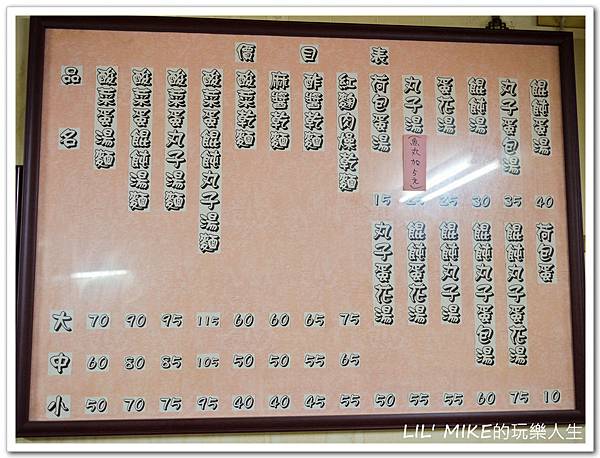 價目表
品名
酸菜蛋湯麵
酸菜蛋餛飩湯麵
酸菜蛋丸子湯麵
酸菜蛋餛飩丸子湯麵
酸菜乾麵
麻醬乾麵
酢醬乾麵
紅麴肉燥乾麵
荷包蛋湯
丸子湯
(魚丸加5元)
蛋花湯
餛飩湯
丸子蛋包湯
餛飩蛋湯
15 25 30 35 40
丸子蛋花湯
餛飩蛋花湯
餛飩丸子湯
餛飩丸子蛋包湯
餛飩丸子蛋花湯
荷包蛋
大 70 90 95 115 60 60 65 75
中 60 80 85 105 50 50 55 65
小 50 70 75 95 40 40 45 55 50 55 55 60 75 10
LIL' MIKE的玩樂人生